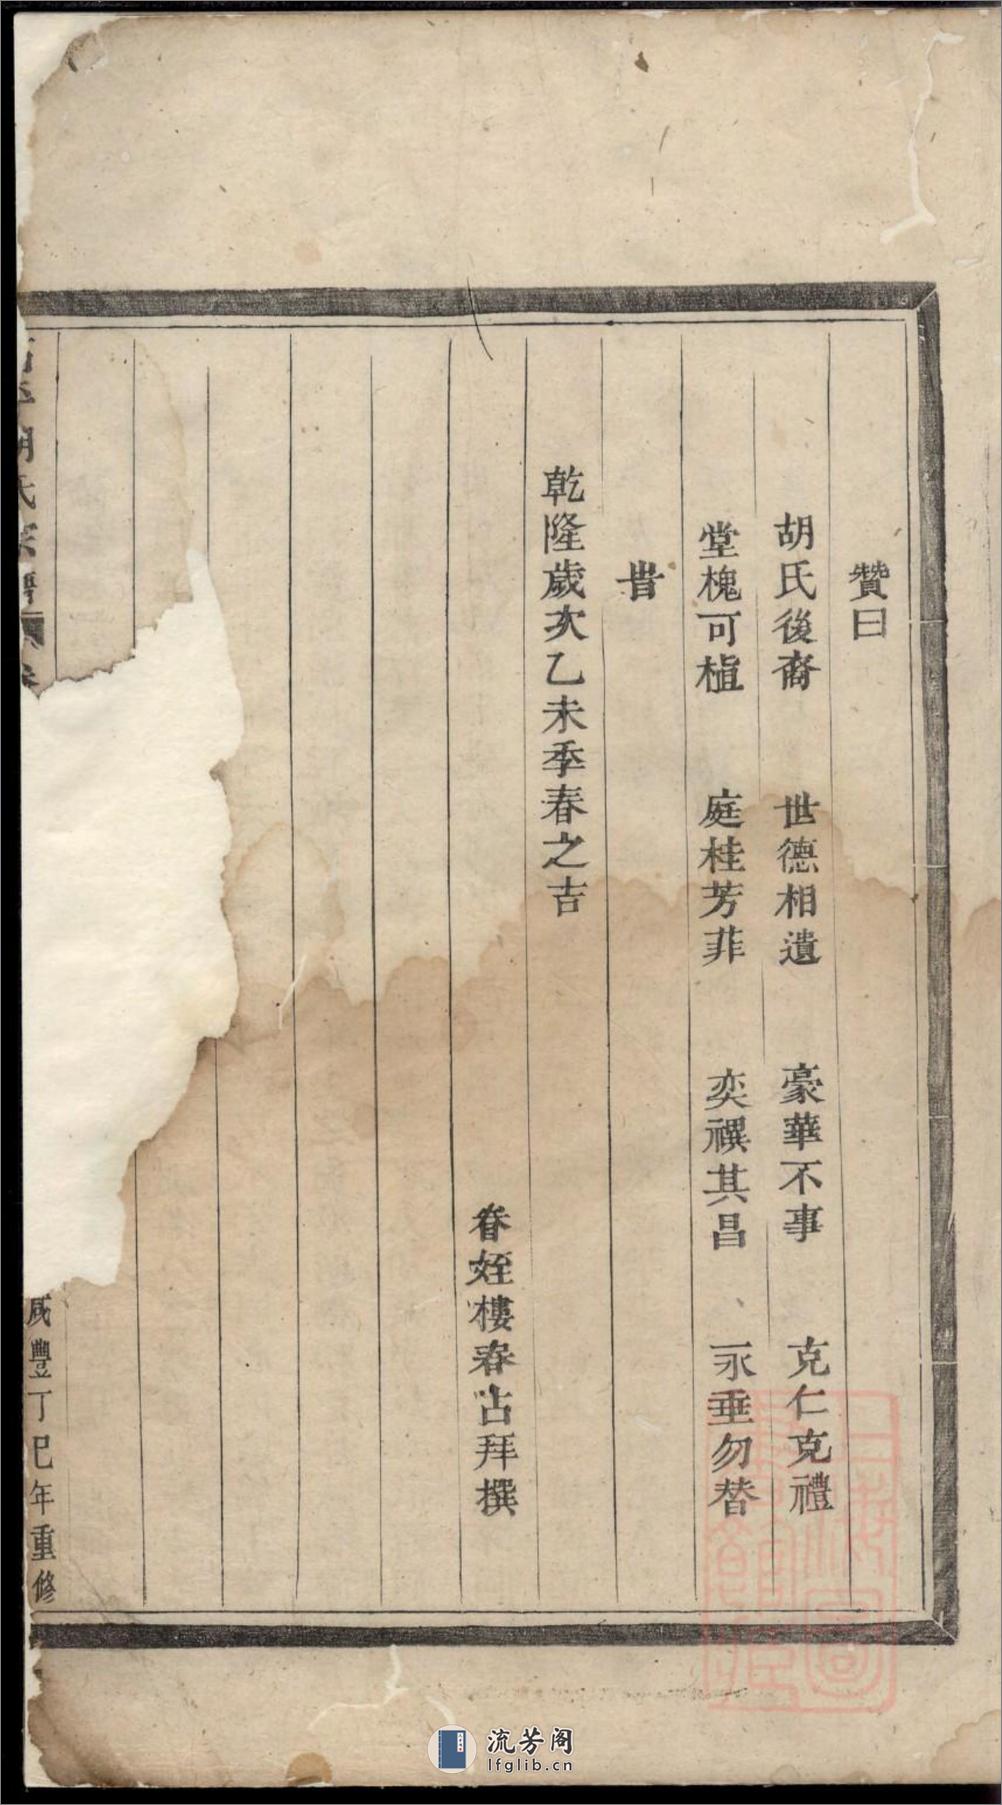 贊曰
胡氏後裔　世德相遺　豪華不事　克仁克禮
堂槐可植　庭桂芳菲　奕禩其昌　永垂勿替
旹
乾隆歲次乙未季春之吉
眷姪樓春占拜撰
胡氏宗譜
咸豐丁巳年重修
流芳阁
lfglib.cn